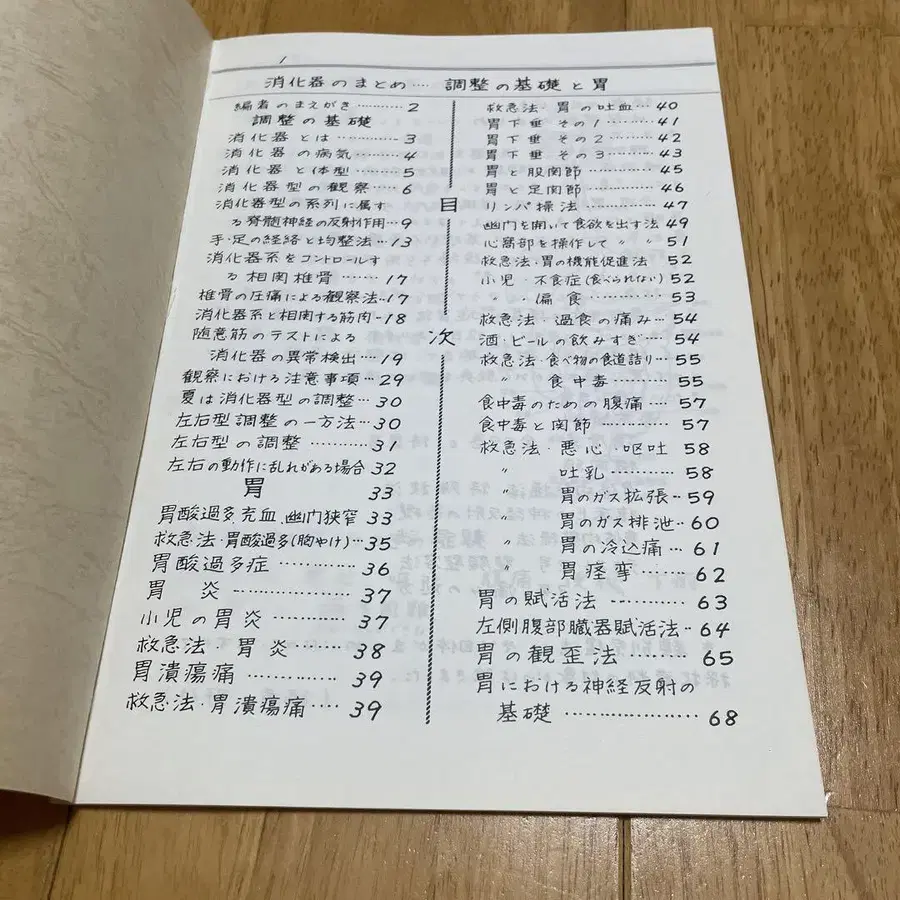 1
消化器のまとめ… 調整の基礎と胃
編者のまえがき………2
調整の基礎
消化器とは…………3
消化器の病気………4
消化器と体型………5
消化器型の観察……6
消化器型の系列に属す
る脊髄神経の反射作用…9
手・足の経絡と均整法…13
消化器系をコントロールす
る相関椎骨……17
椎骨の圧痛による観察法…17
消化器系と相関する筋肉…18
随意筋のテストによる
消化器の異常検出…19
観察における注意事項…29
夏は消化器型の調整…30
左右型調整の一方法…30
左右型の調整………31
左右の動作に乱れがある場合 32
胃 33
胃酸過多、充血、幽門狭窄 33
救急法・胃酸過多(胸やけ)…35
胃酸過多症…………36
胃炎…………………37
小児の胃炎…………37
救急法・胃炎………38
胃潰瘍痛……………39
救急法・胃潰瘍痛…39
目
次
救急法・胃の吐血…40
胃下垂 その1………41
胃下垂 その2………42
胃下垂 その3………43
胃と股関節…………45
胃と足関節…………46
リンパ操法…………47
幽門を開いて食欲を出す法 49
心窩部を操作して 〃 〃 51
救急法・胃の機能促進法 52
小児・不食症(食べられない) 52
〃・偏食……………53
救急法・過食の痛み…54
酒・ビールの飲みすぎ…54
救急法・食べ物の食道詰り…55
〃 食中毒…………55
食中毒のための腹痛…57
食中毒と関節………57
救急法・悪心・嘔吐 58
〃 吐乳……………58
〃 胃のガス拡張…59
〃 胃のガス排泄…60
〃 胃の冷込痛……61
〃 胃痙攣…………62
胃の賦活法…………63
左側腹部臓器賦活法…64
胃の観歪法…………65
胃における神経反射の
基礎…………………68